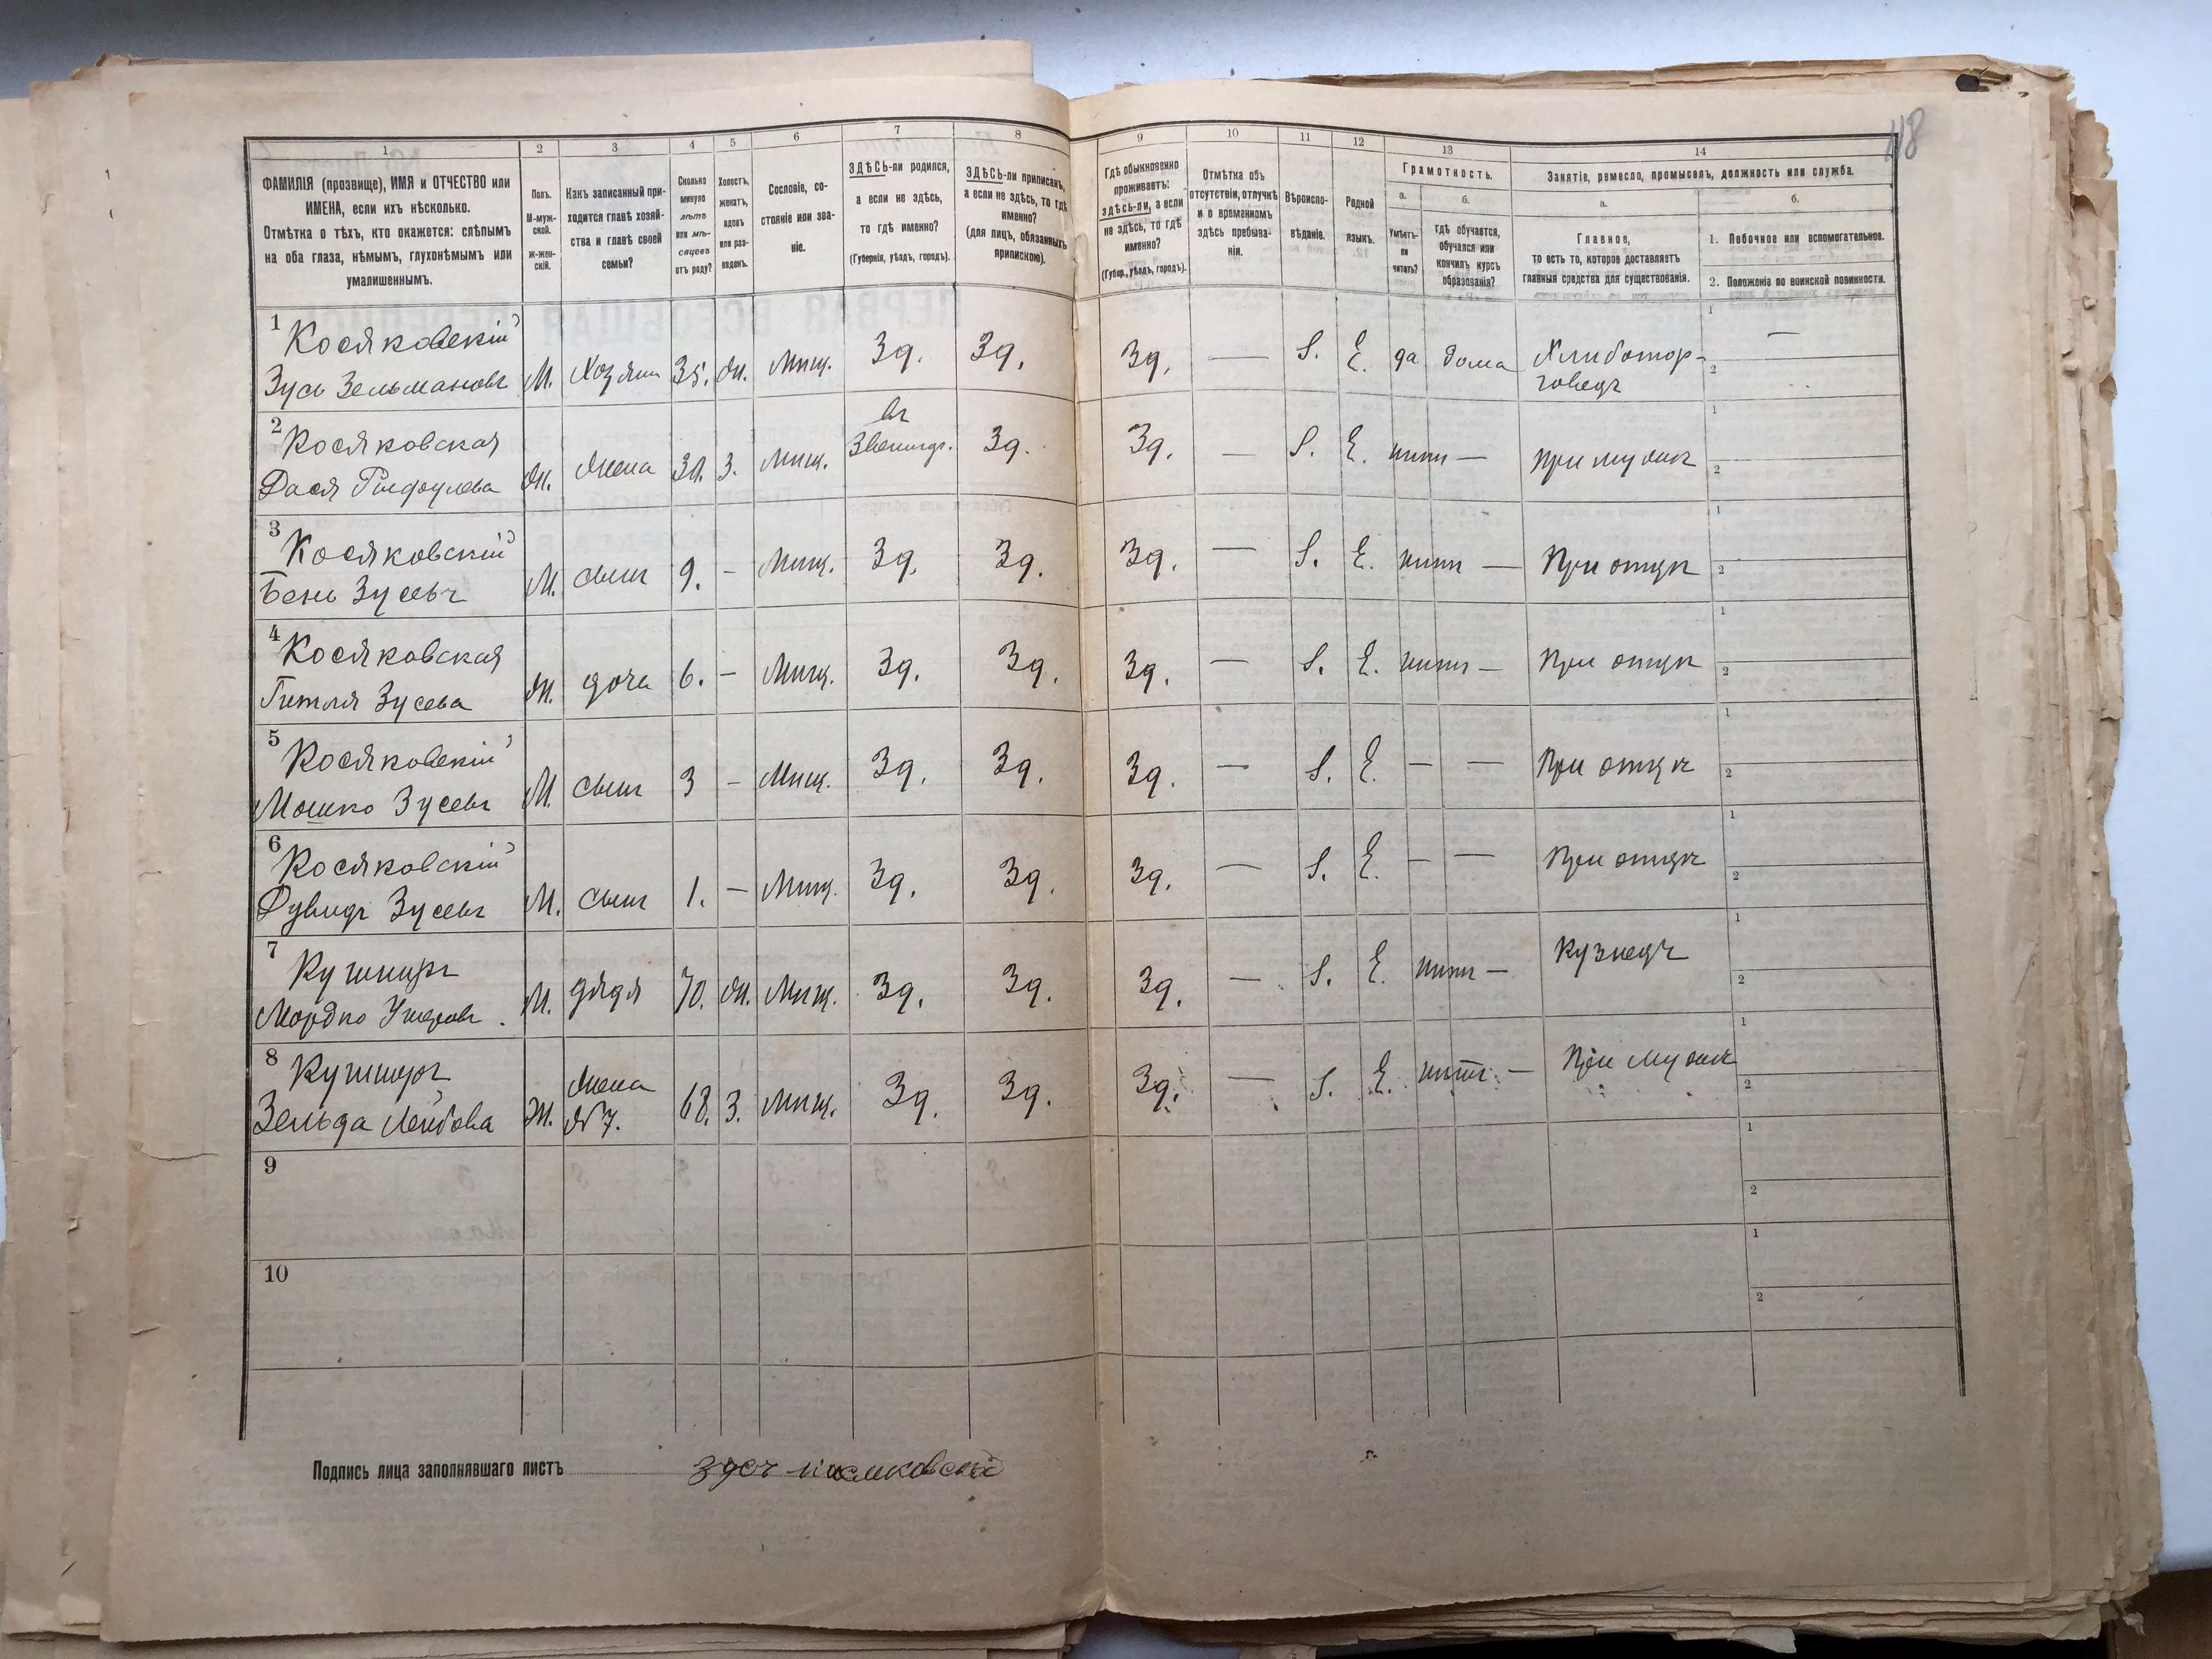 118
1
2
3
4
5
6
7
8
9
10
11
12
13
14
ФАМИЛІЯ (прозвище), ИМЯ и ОТЧЕСТВО или
ИМЕНА, если ихъ нѣсколько.
Отмѣтка о тѣхъ, кто окажется: слѣпымъ
на оба глаза, нѣмымъ, глухонѣмымъ или
умалишеннымъ.
Полъ.
М-муж-
ской.
Ж-жен-
скій.
Какъ записанный при-
ходится главѣ хозяй-
ства и главѣ своей
семьи?
Сколько
минуло
лѣтъ
или мѣ-
сяцевъ
отъ роду?
Холостъ,
женатъ,
вдовъ
или раз-
веденъ.
Сословіе, со-
стояніе или зва-
ніе.
ЗДѢСЬ-ли родился,
а если не здѣсь,
то гдѣ именно?
(Губернія, уѣздъ, городъ).
ЗДѢСЬ-ли приписанъ,
а если не здѣсь, то гдѣ
именно?
(для лицъ, обязанныхъ
припискою).
Гдѣ обыкновенно
проживаетъ:
здѣсь-ли, а если
не здѣсь, то гдѣ
именно?
(Губер., уѣздъ, городъ).
Отмѣтка объ
отсутствіи, отлучкѣ
и о временномъ
здѣсь пребыва-
ніи.
Вѣроиспо-
вѣданіе.
Родной
языкъ.
Грамотность.
а.
Умѣетъ-
ли
читать?
б.
гдѣ обучается,
обучался или
кончилъ курсъ
образованія?
Занятіе, ремесло, промыселъ, должность или служба.
а.
Главное,
то есть то, которое доставляетъ
главныя средства для существованія.
б.
1. Побочное или вспомогательное.
2. Положеніе по воинской повинности.
1 Косяковскій
Зусь Зельмановъ М. Хозяин 35. Ж. Мищ. Зд. Зд. Зд. — І. Е. да дома Хлиботор-
говецъ 1 — 2
2 Косяковская
Дася Ж. Жена 3. Мищ. въ
Звенигор. Зд. Зд. — І. Е. нить — При мужи 1 2
3 Косяковскій
Бень Зусевъ М. сынъ 9. – Мищ. Зд. Зд. Зд. — І. Е. нить — При отцѣ 1 2
4 Косяковская
Гитля Зусева Ж. дочь 6. – Мищ. Зд. Зд. Зд. — І. Е. нить — При отцѣ 1 2
5 Косяковскій
Мошко Зусевъ М. сынъ 3 – Мищ. Зд. Зд. Зд. — І. Е. – — При отцѣ 1 2
6 Косяковскій
Дувидъ Зусевъ М. сынъ 1. – Мищ. Зд. Зд. Зд. — І. Е. – — При отцѣ 1 2
7 Кушниръ
Мордко Ушеровъ М. дядя 70. Ж. Мищ. Зд. Зд. Зд. — І. Е. нить — Кузнецъ 1 2
8 Кушниръ
Зельда Лейбова Ж. Жена
№7. 68. З. Мищ. Зд. Зд. Зд. — І. Е. нить — При мужи 1 2
9 1 2
10 1 2
Подпись лица заполнявшаго листъ